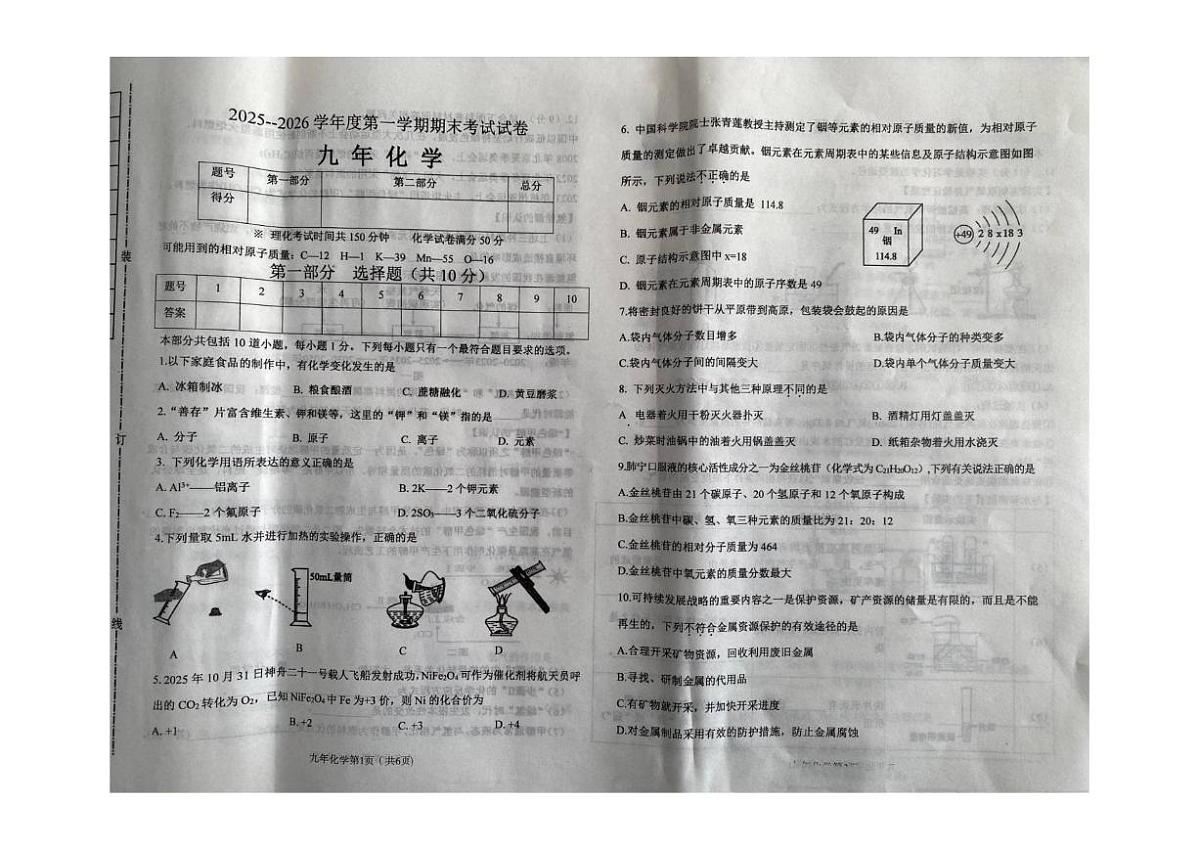 2025--2026学年度第一学期期末考试试卷
九 年 化 学
题号 第一部分 第二部分 总分
得分
※ 理化考试时间共150分钟 化学试卷满分50分
可能用到的相对原子质量：C—12 H—1 K—39 Mn—55 O—16
第一部分 选择题（共10分）
题号 1 2 3 4 5 6 7 8 9 10
答案
本部分共包括10道小题，每小题1分。下列每小题只有一个最符合题目要求的选项。
1.以下家庭食品的制作中，有化学变化发生的是
A. 冰箱制冰 B. 粮食酿酒 C. 蔗糖融化 D. 黄豆磨浆
2.“善存”片富含维生素、钾和镁等，这里的“钾”和“镁”指的是
A. 分子 B. 原子 C. 离子 D. 元素
3. 下列化学用语所表达的意义正确的是
A. Al³⁺——铝离子 B. 2K——2个钾元素
C. F₂——2个氟原子 D. 2SO₃——3个二氧化硫分子
4.下列量取5mL水并进行加热的实验操作，正确的是
50mL量筒
A B C D
5. 2025年10月31日神舟二十一号载人飞船发射成功，NiFe₂O₄可作为催化剂将航天员呼
出的CO₂转化为O₂，已知NiFe₂O₄中Fe为+3价，则Ni的化合价为
A. +1 B. +2 C. +3 D. +4
九年化学第1页（共6页）
6. 中国科学院院士张青莲教授主持测定了铟等元素的相对原子质量的新值，为相对原子
质量的测定做出了卓越贡献。铟元素在元素周期表中的某些信息及原子结构示意图如图
所示，下列说法不正确的是
A. 铟元素的相对原子质量是 114.8
B. 铟元素属于非金属元素
C. 原子结构示意图中x=18
D. 铟元素在元素周期表中的原子序数是49
49 In
铟
114.8
+49 2 8 x 18 3
7.将密封良好的饼干从平原带到高原，包装袋会鼓起的原因是
A.袋内气体分子数目增多 B.袋内气体分子的种类变多
C.袋内气体分子间的间隔变大 D.袋内单个气体分子质量变大
8. 下列灭火方法中与其他三种原理不同的是
A 电器着火用干粉灭火器扑灭 B. 酒精灯用灯盖盖灭
C. 炒菜时油锅中的油着火用锅盖盖灭 D. 纸箱杂物着火用水浇灭
9.肺宁口服液的核心活性成分之一为金丝桃苷（化学式为C₂₁H₂₀O₁₂）,下列有关说法正确的是
A.金丝桃苷由21个碳原子、20个氢原子和12个氧原子构成
B.金丝桃苷中碳、氢、氧三种元素的质量比为21：20：12
C.金丝桃苷的相对分子质量为464
D.金丝桃苷中氧元素的质量分数最大
10.可持续发展战略的重要内容之一是保护资源，矿产资源的储量是有限的，而且是不能
再生的，下列不符合金属资源保护的有效途径的是
A.合理开采矿物资源，回收利用废旧金属
B.寻找、研制金属的代用品
C.有矿物就开采，并加快开采进度
D.对金属制品采用有效的防护措施，防止金属腐蚀
装
订
线